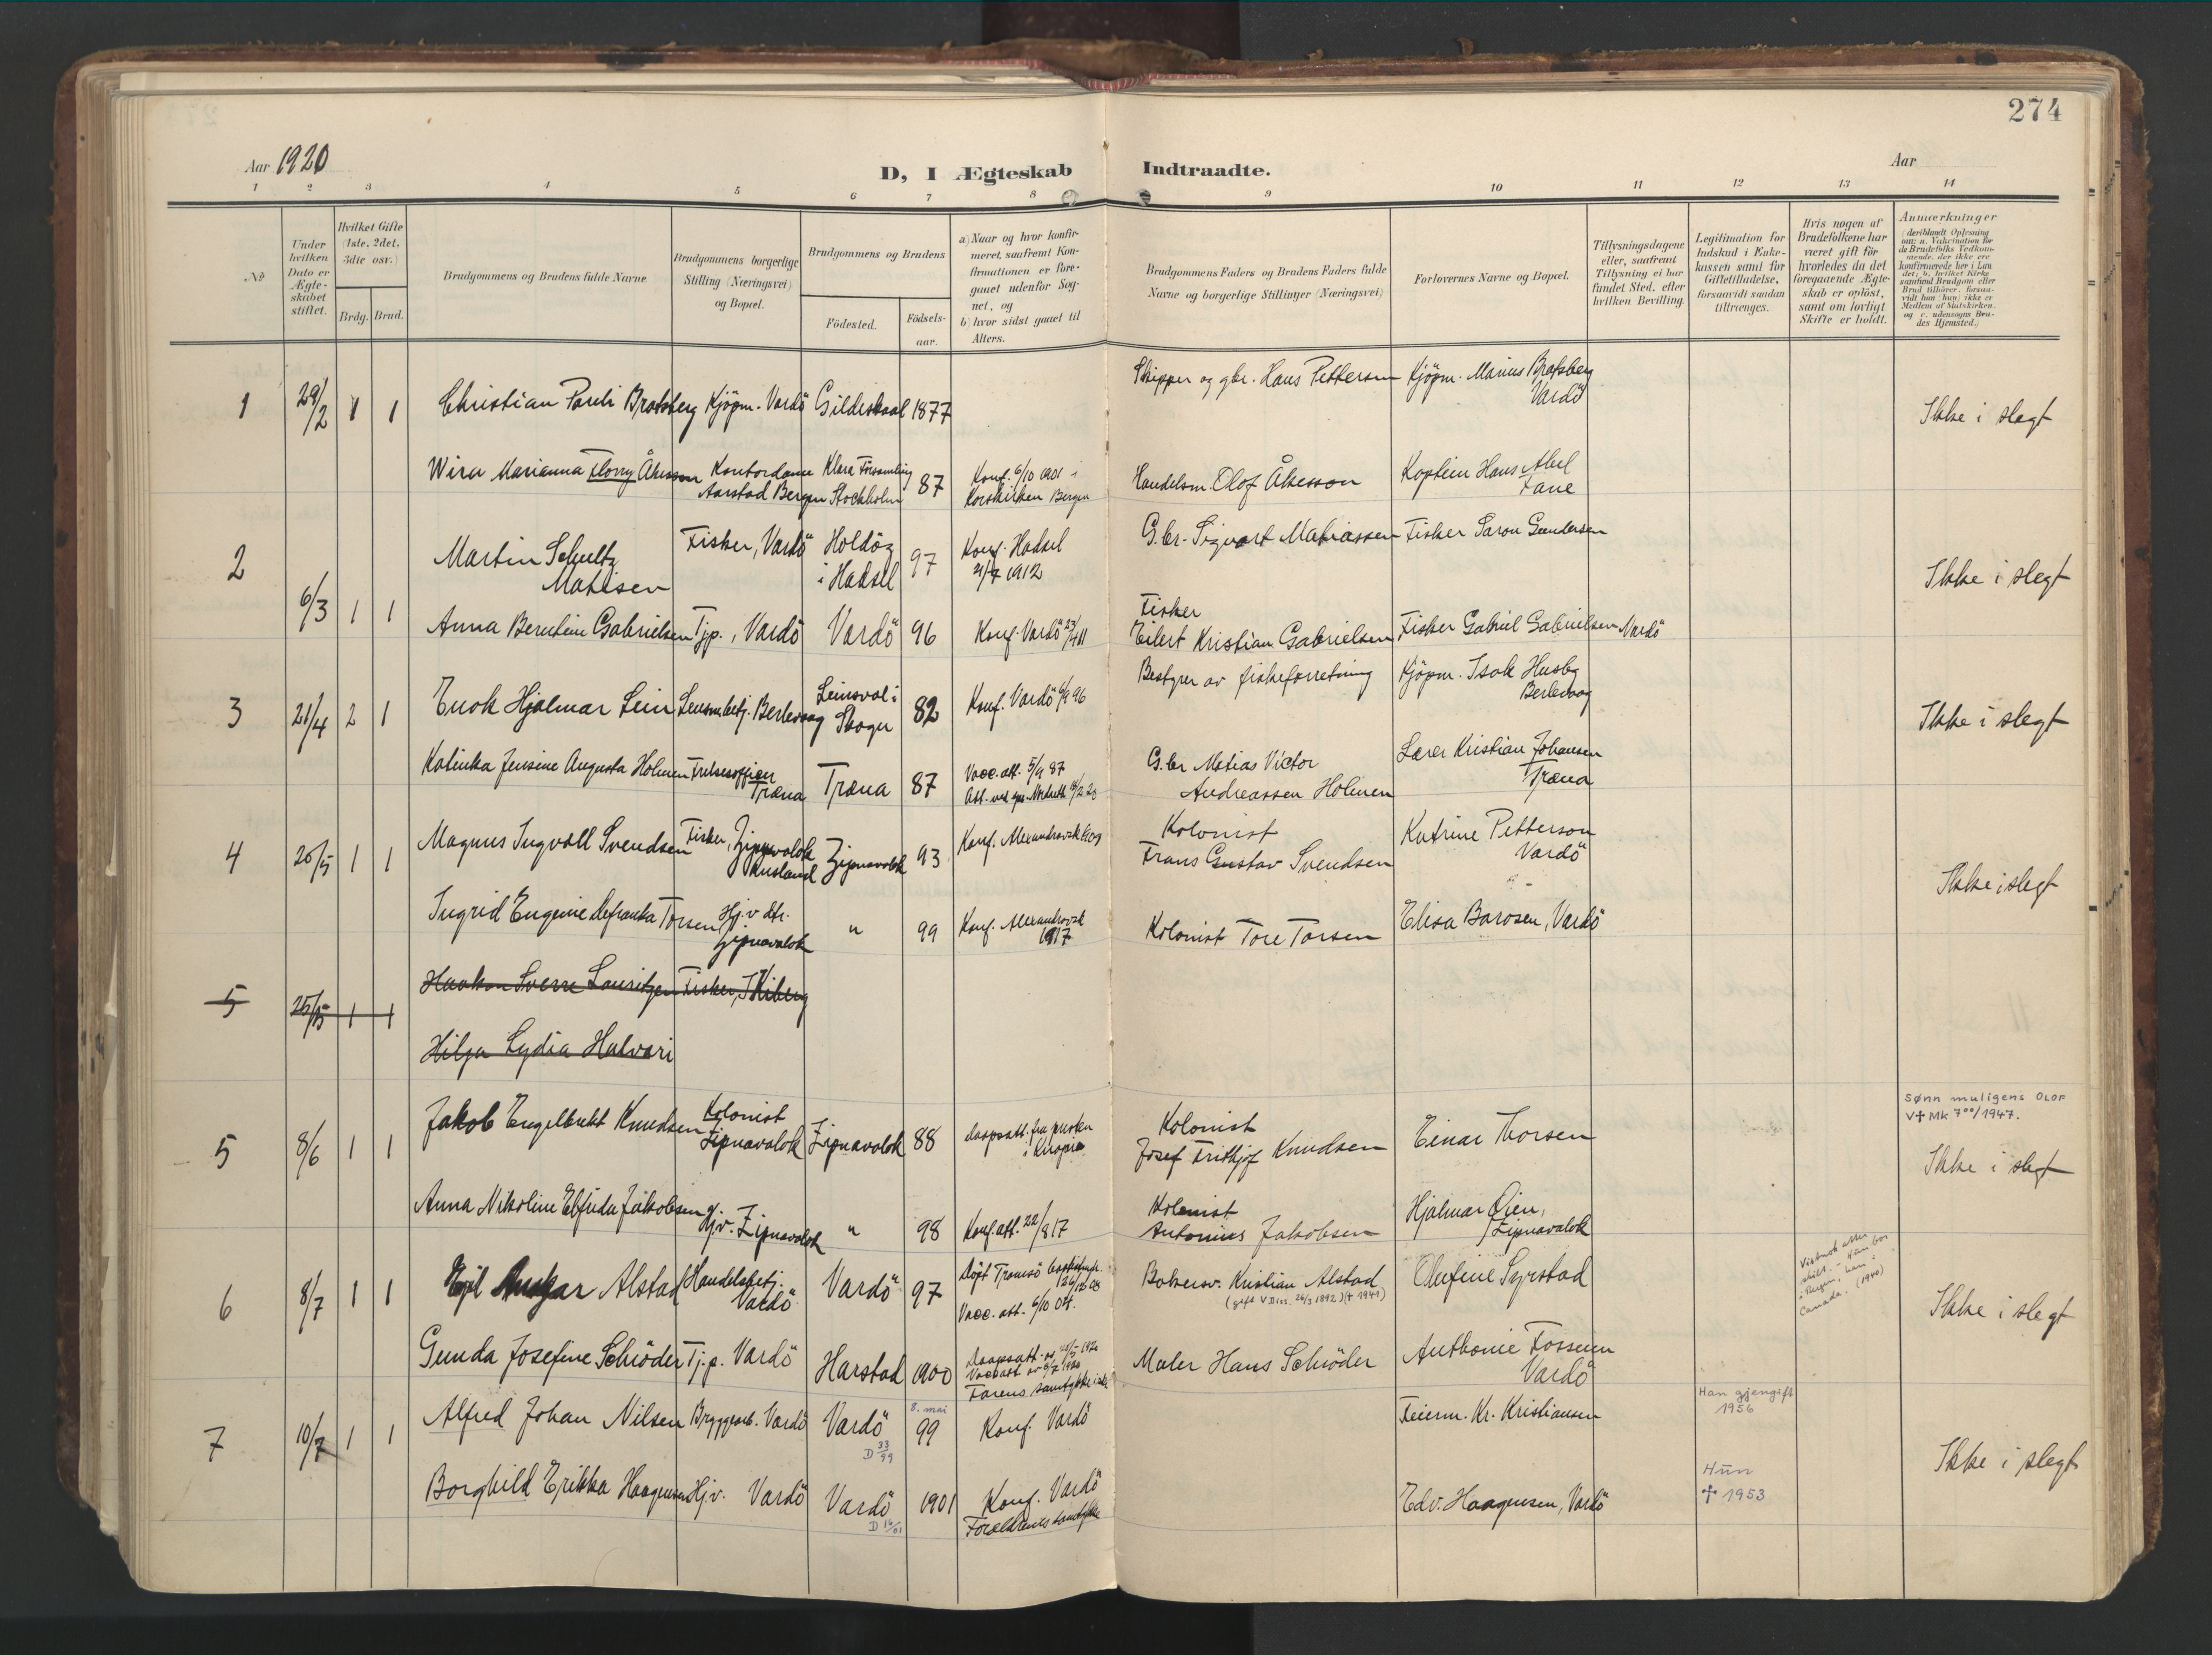 274
Aar 1920
Aar
D, I Ægteskab Indtraadte.
1 2 3 4 5 6 7 8 9 10 11 12 13 14
No
Under hvilken Dato er Ægteskabet stiftet.
Hvilket Gifte (1ste, 2det, 3die osv.)
Brdg. Brud.
Brudgommens og Brudens fulde Navne
Brudgommens borgerlige Stilling (Næringsvei) og Bopæl.
Brudgommens og Brudens
Födested. Födselsaar.
a) Naar og hvor konfirmeret, saafremt Konfirmationen er foregaaet udenfor Sognet, og
b) hvor sidst gaaet til Alters.
Brudgommens Faders og Brudens Faders fulde Navne og borgerlige Stillinger (Næringsvei)
Forlovernes Navne og Bopæl.
Tillysningsdagene eller, saafremt Tillysning ei har fundet Sted, efter hvilken Bevilling.
Legitimation for Indskud i Enkekassen samt for Giftetilladelse, forsaavidt saadan tiltrænges.
Hvis nogen af Brudefolkene har været gift før hvorledes da det foregaaende Ægteskab er opløst, samt om lovligt Skifte er holdt.
Anmærkninger (deriblandt Oplysning om: a. Vakcination for de Brudefolks Vedkommende, der ikke ere konfirmerede her i Landet; b. hvilket Kirkesamfund Brudgom eller Brud tilhører, forsaavidt han (hun) ikke er Medlem af Statskirken, og c. udensogns Brudes Hjemsted.)
1 29/2 1 1 Christian Brotsberg Kjöpm. Vardö Gildeskaal 1877
Skipper og gbr. Hans Petterson Kjöpm. Marius Brotsberg
Vardö
Ikke i slegt
Wira Marianna Florry Åkesson Kontordame Klara Församling 87 Konf. 6/10 1901 i
Aarstad Bergen Stockholm Korskirken Bergen
Handelsm. Olof Åkesson Kaptein Hans Abel
Fane
2 6/3 1 1 Martin Schultz Fisker, Vardö 97 Konf. Hadsel
Matisen i Hadsel 21/7 1912
G.br. Sigvart Matiassen Fisker Saron Gundersen
Ikke i slegt
Anna Berntine Gabrielsen Tjp., Vardö Vardö 96 Konf. Vardö 23/4 11
Fisker
Eilert Kristian Gabrielsen Fisker Gabriel Gabrielsen Vardö
3 21/4 2 1 Enok Hjalmar Lein Lensm.betj. Berlevaag 82 Konf. Vardö 6/9 96
Bestyrer av fiskeforretning Kjöpm. Isak Husby
Berlevaag
Ikke i slegt
Katinka Jensine Augusta Holmen Frelsesoffiser
Træna Træna 87 Vacc. att. 5/9 87
G.br Matias Victor Lærer Kristian Johansen
Andreassen Holmen Træna
4 20/5 1 1 Magnus Ingvall Svendsen Fisker, Zipnavolok Zipnavolok 93 Konf. Alexandrovsk 1909
Rusland
Kolonist Katrine Petterson
Frans Gustav Svendsen Vardö
Ikke i slegt
Ingrid Eugenie Torsen Hj.v. dtr. " 99 Konf. Alexandrovsk
Zipnavolok 1917
Kolonist Tore Torsen Elisa Barosen, Vardö
5 25/5 1 1 Haakon Sverre Lauritzen Fisker, Kiberg
Hilja Lydia Halvari
5 8/6 1 1 Jakob Engelbrekt Knudsen Kolonist
Zipnavolok Zipnavolok 88 daapsatt. fra presten
Kolonist
Josef Frithjof Knudsen Einar Thorsen
Sønn muligens OLOF
V✝ Mk 7⁰⁰/1947.
Ikke i slegt
Anna Nikoline Elfrida Jakobsen Hj.v. Zipnavolok " 98 Konf.att. 22/8 17
Kolonist Hjalmar Öien,
Antonius Jakobsen Zipnavolok
6 8/7 1 1 Egil Ansgar Alstad Handelsbetj.
Vardö Vardö 97 Döpt Tromsö
Vacc. att. 6/10 04.
Bokersv. Kristian Alstad Olufine Syrstad
(gift V Diss. 26/3 1892) († 1941)
Hun bor i Bergen, han i Canada. (1940)
Ikke i slegt
Gunda Josefine Schröder Tj.p. Vardö Harstad 1900 Daapsatt. av 25/5 1920
Vacc att av 5/7 1920
Farens samtykke
Maler Hans Schröder Anthonie Fossum
Vardö
7 10/7 1 1 Alfred Johan Nilsen Bryggearb. Vardö Vardö 8. mai 99 Konf. Vardö
D 33/99
Feierm. Kr. Kristiansen
Han gjengift
1956
Ikke i slegt
Borghild Erikka Haagensen Hj.v. Vardö Vardö 1901 Konf. Vardö
D 16/01 Forældrenes samtykke
Edv. Haagensen, Vardö
Hun
✝ 1953